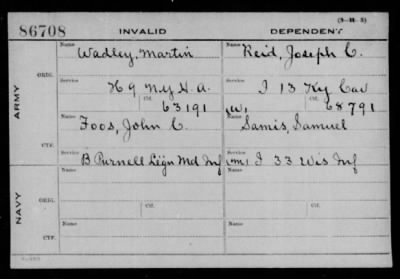 (3-M-3)
86708 INVALID DEPENDENT
ARMY
ORIG.
Name Name
Wadley, Martin Reid, Joseph C.
Service Service
H 9 N.Y. H. A. I 13 Ky Cav
Ctf. Ctf.
63191 W, 68791
CTF.
Name Name
Foos, John C. Samis, Samuel
Service Service
B Purnell Legn Md Inf (m) I 33 Wis Inf
NAVY
ORIG.
Name Ctf. Name Ctf.
CTF.
Name Name